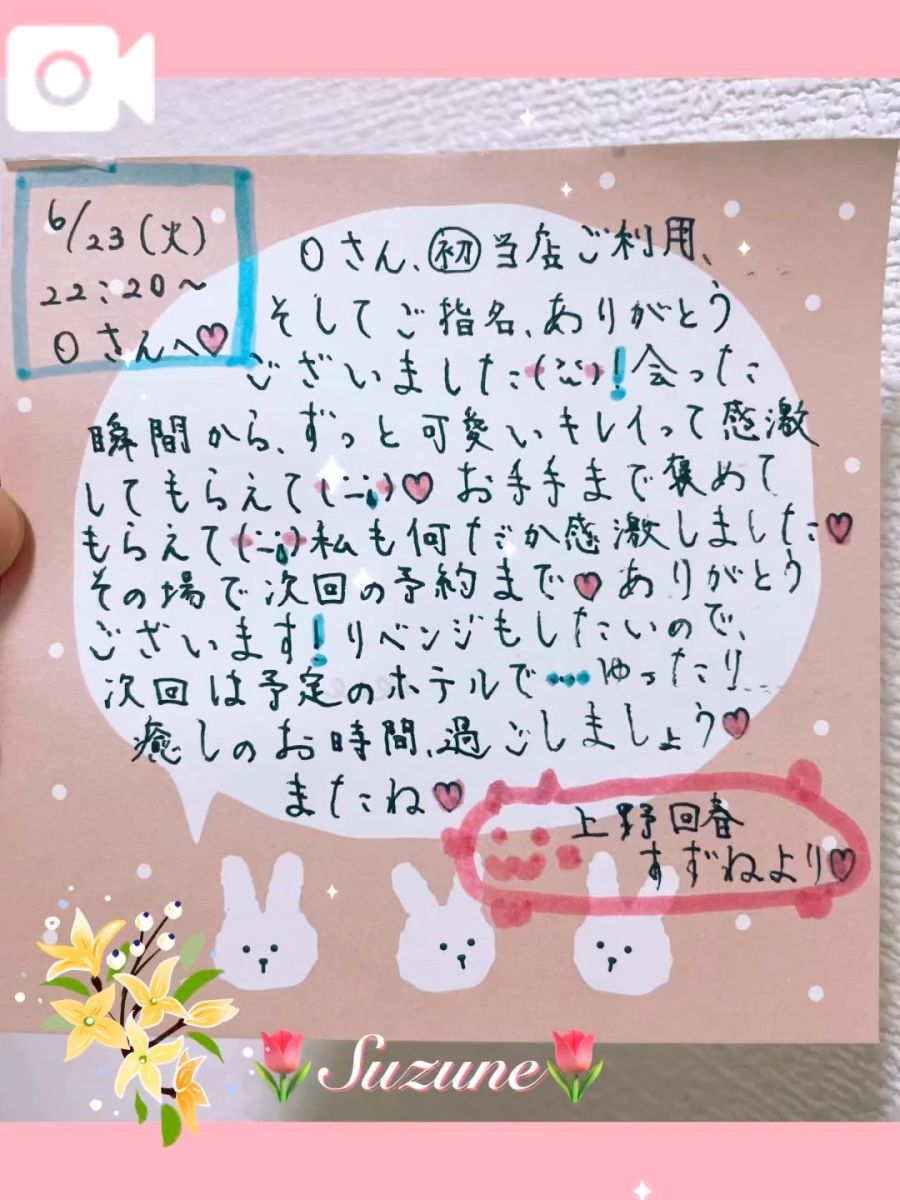 6/23(火)
22:20~
Oさんへ♡
Oさん、㊗初当店ご利用、
そしてご指名、ありがとう
ございました!会った
瞬間から、ずっと可愛いキレイって感激
してもらえて♡お手手まで褒めて
もらえて私も何だか感激しました♡
その場で次回の予約まで♡ありがとう
ございます!リベンジもしたいので、
次回は予定のホテルで…ゆったり
癒しのお時間、過ごしましょう♡
またね♡
上野回春
すずねより♡
Suzune